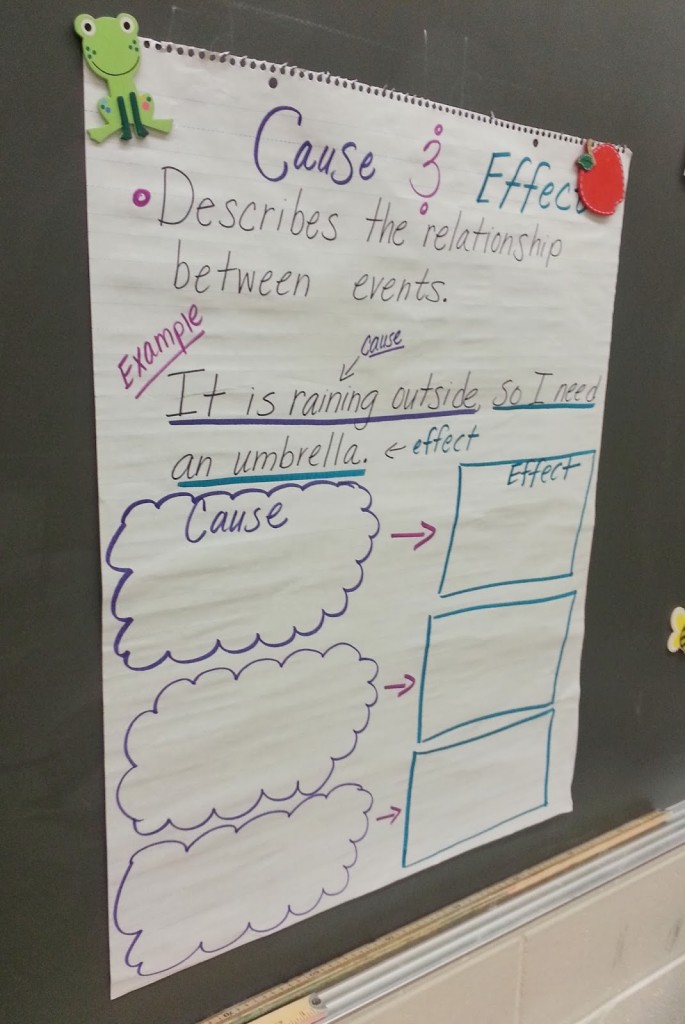 Cause & Effect
Describes the relationship
between events.
Example
cause
It is raining outside, so I need
an umbrella. ← effect
Cause
Effect